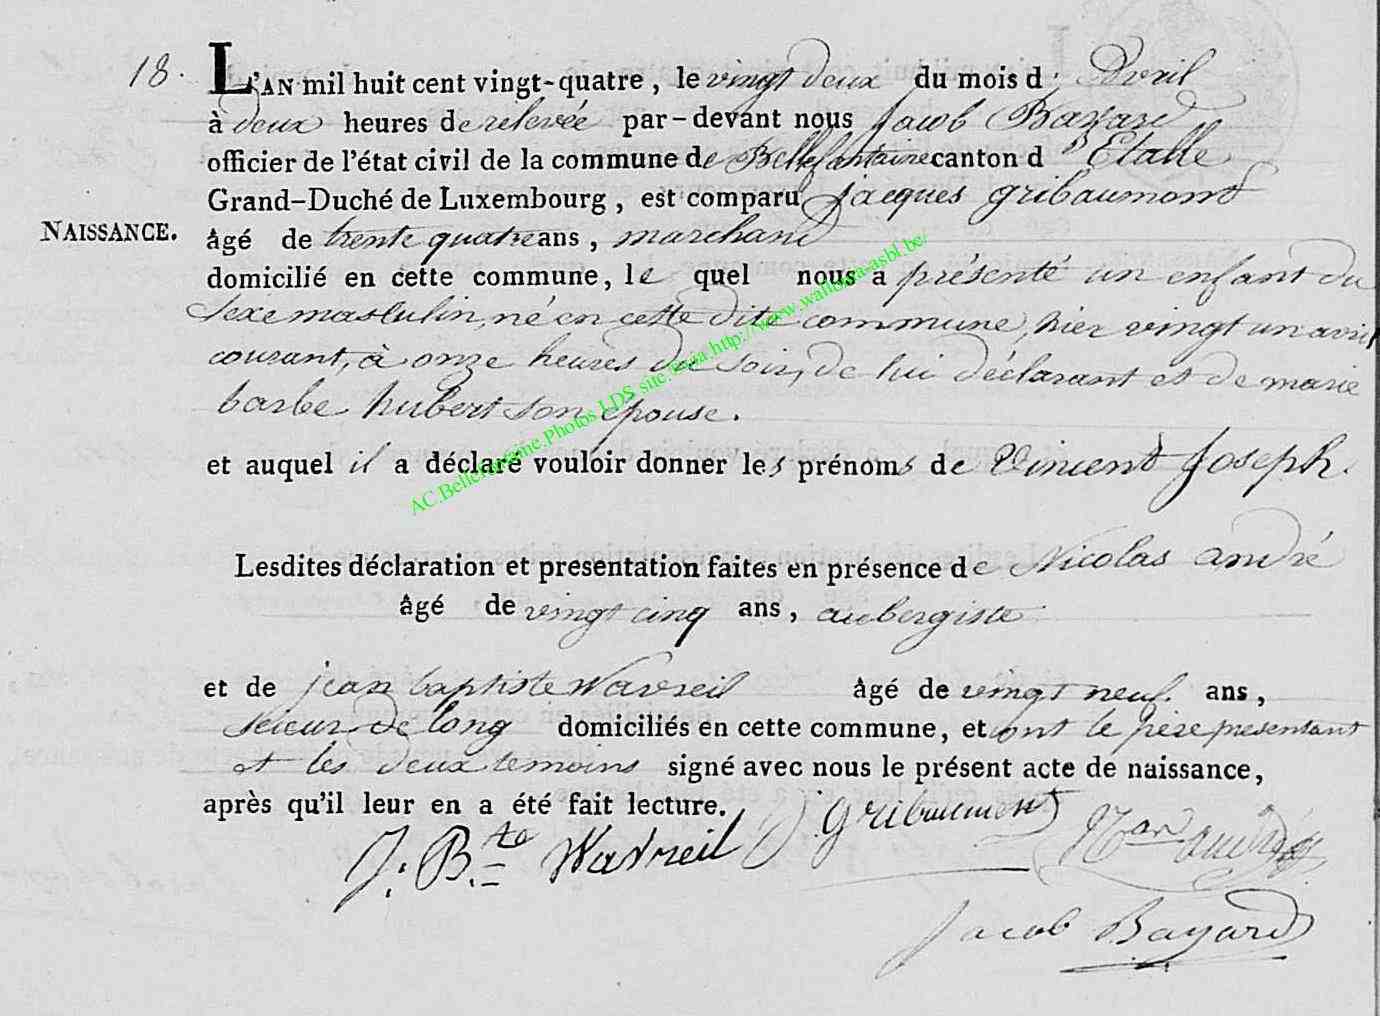 18.
L'AN mil huit cent vingt-quatre, le vingt deux du mois d'Avril
à deux heures de relevée par-devant nous Jacob Bayard
officier de l'état civil de la commune de Bellefontaine canton d'Etalle
Grand-Duché de Luxembourg, est comparu jacques gribaumont
NAISSANCE.
âgé de trente quatre ans, marchand
domicilié en cette commune, le quel nous a présenté un enfant du
Sexe masculin, né en cette dite commune, hier vingt un avril
courant, à onze heures du soir, de lui déclarant et de marie
barbe hubert son épouse.
et auquel il a déclaré vouloir donner les prénoms de Vincent Joseph.
AC.Bellefontaine.Photos LDS sur Inéa.http://www.wallonia-asbl.be/
Lesdites déclaration et presentation faites en présence de Nicolas andré
âgé de vingt cinq ans, aubergiste
et de jean baptiste Wavreil âgé de vingt neuf ans,
scieur de long domiciliés en cette commune, et ont le père presentant
et les deux temoins signé avec nous le présent acte de naissance,
après qu'il leur en a été fait lecture.
J. Bte Wavreil J gribaumont Nas andré
Jacob Bayard